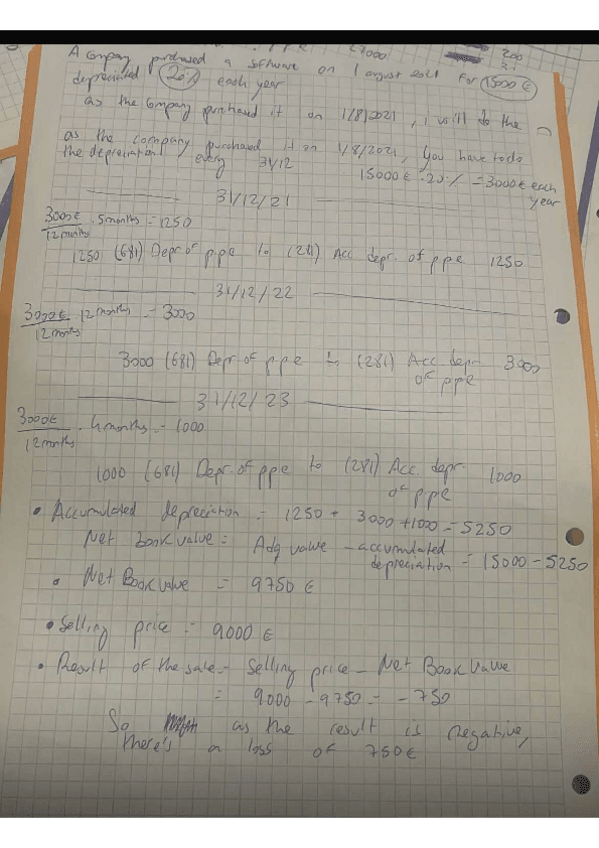 27000 200
A Company purchased a software on 1 august 2021 for 15000 €
depreciated 20% each year
as the Company purchased it on 1/8/2021, i will do the
as the company purchased it on 1/8/2021, You have to do
the depreciation every 31/12
15000€ · 20% = 3000€ each
year
31/12/21
3000€ · 5 months = 1250
12 months
1250 (681) Depr of ppe to (281) Acc depr. of ppe 1250
31/12/22
3000€ · 12 months = 3000
12 months
3000 (681) Depr of ppe to (281) Acc depr 3000
of ppe
31/12/23
3000€ · 4 months = 1000
12 months
1000 (681) Depr. of ppe to (281) Acc. depr. 1000
of ppe
• Accumulated depreciation = 1250 + 3000 + 1000 = 5250
Net book value = Adq value - accumulated
depreciation = 15000 - 5250
• Net Book Value = 9750 €
• Selling price = 9000 €
• Result of the sale = Selling price - Net Book Value
= 9000 - 9750 = -750
So as the result is negative,
there's a loss of 750€